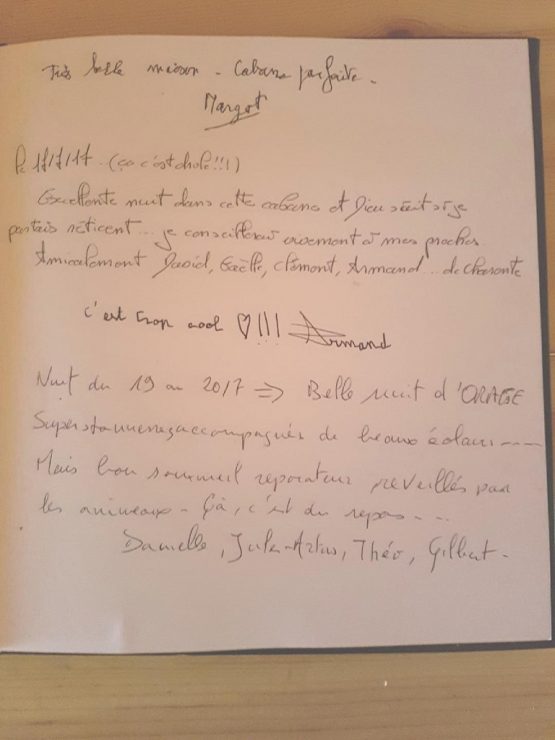 Très belle maison - Cabane parfaite.
Margot
le 17/7/17. (ça c'est drôle!!!)
Excellente nuit dans cette cabane et Dieu sait si je
partais réticent... je conseillerai vivement à mes proches
Amicalement David, Gaëlle, Clément, Armand... de Charente
c'est trop cool ♡!!! Armand
Nuit du 19 au 20/7 => Belle nuit d'ORAGE
Supers tonnerres accompagnés de beaux éclairs ----
Mais bon sommeil réparateur réveillés par
les animaux - Çà, c'est du repos...
Danielle, Jules-Artus, Théo, Gilbert.